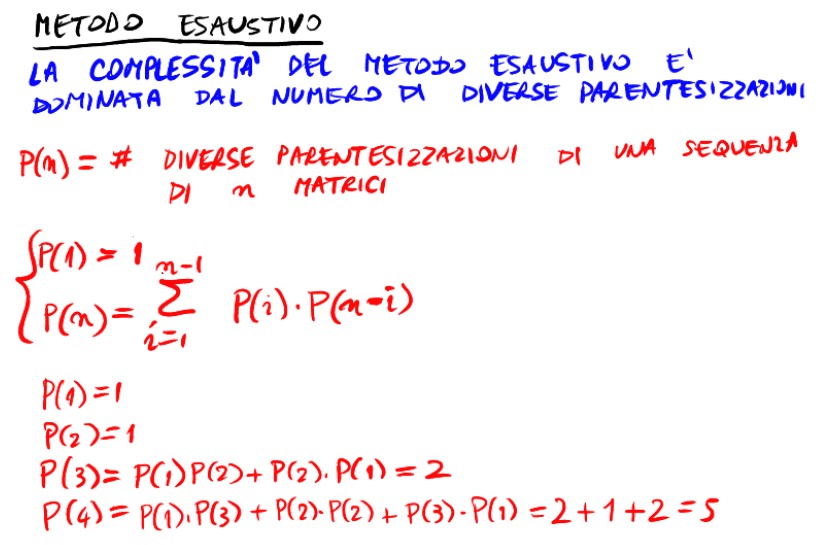 METODO ESAUSTIVO
LA COMPLESSITA' DEL METODO ESAUSTIVO E'
DOMINATA DAL NUMERO DI DIVERSE PARENTESIZZAZIONI
P(n) = # DIVERSE PARENTESIZZAZIONI DI UNA SEQUENZA
DI n MATRICI
P(1) = 1
P(n) = n-1 ∑ i=1 P(i)·P(n-i)
P(1)=1
P(2)=1
P(3)= P(1)P(2)+ P(2)·P(1) = 2
P(4)= P(1)·P(3) + P(2)·P(2) + P(3)·P(1) = 2+1+2=5